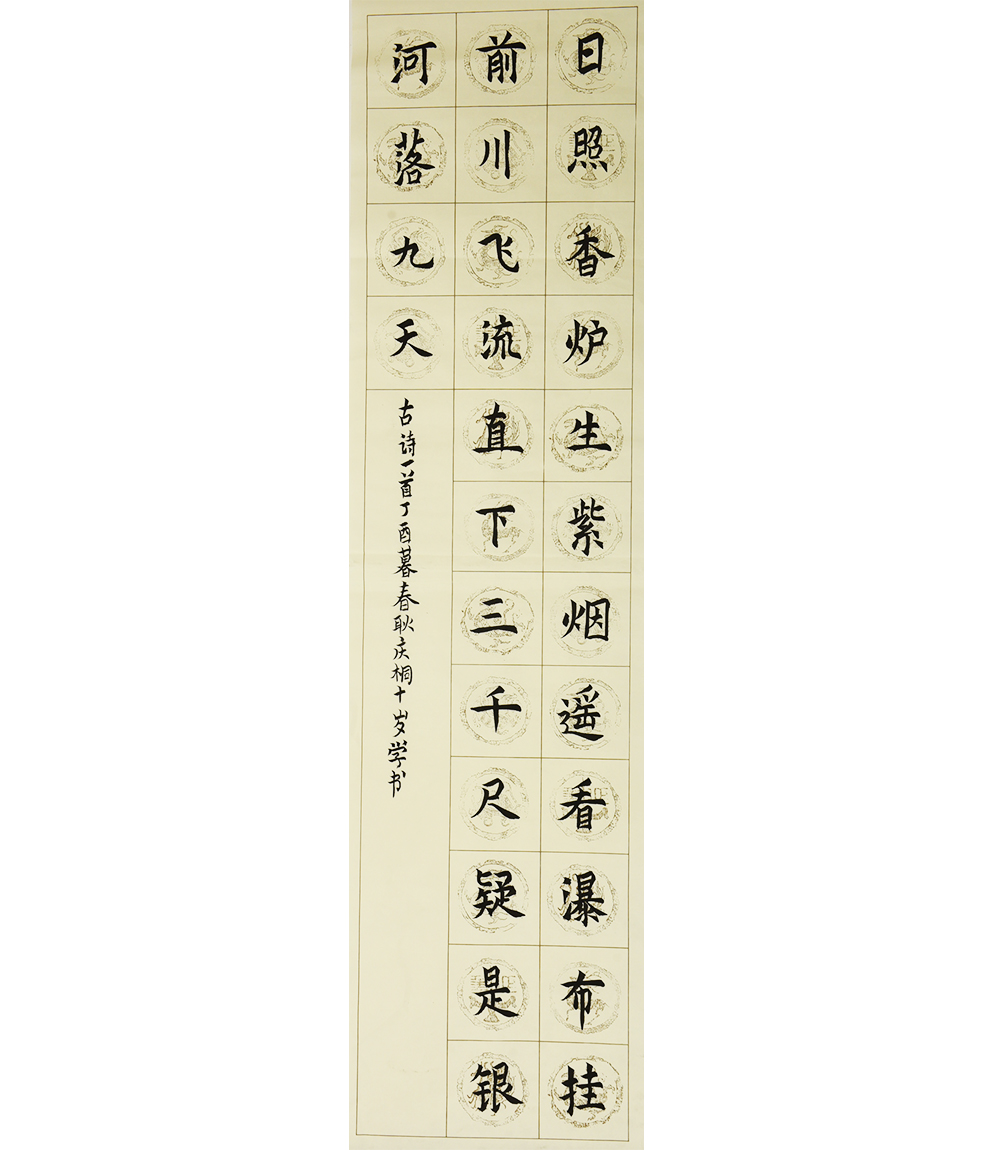 日照香炉生紫烟遥看瀑布挂
前川飞流直下三千尺疑是银
河落九天
古诗一首丁酉暮春耿庆桐十岁学书